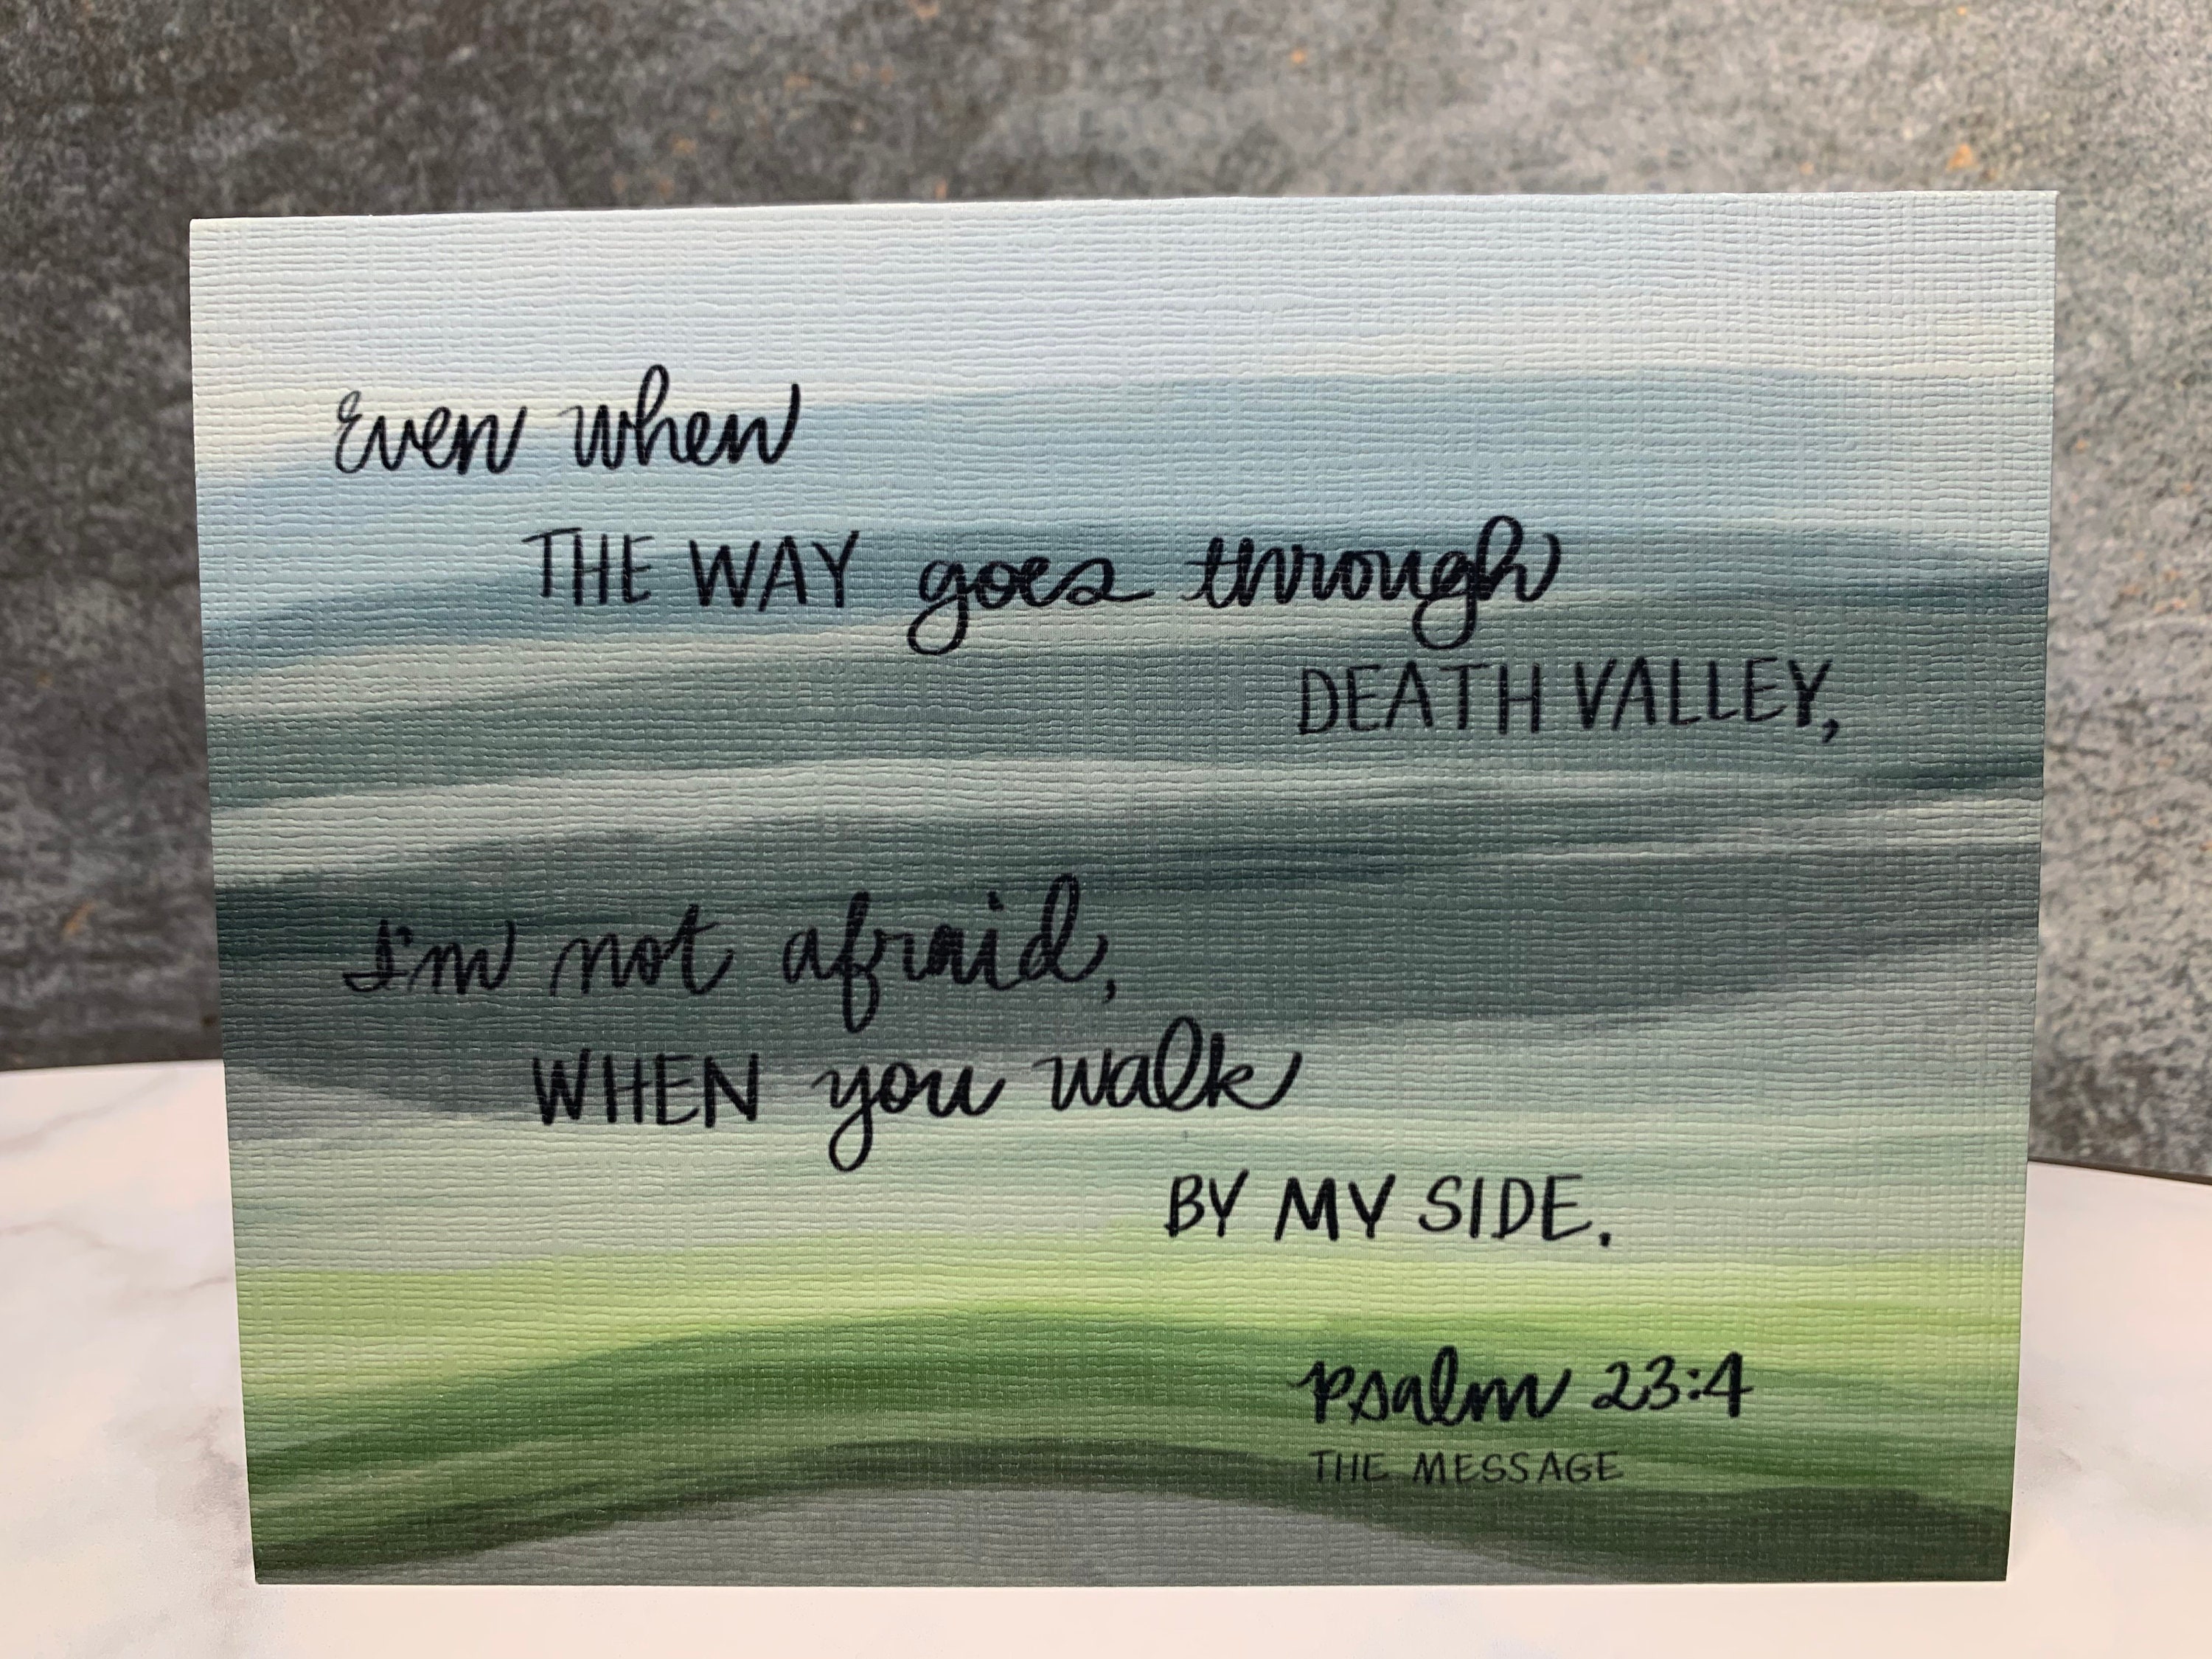 Even when
THE WAY goes through
DEATH VALLEY,
I'm not afraid,
WHEN you walk
BY MY SIDE.
psalm 23:4
THE MESSAGE